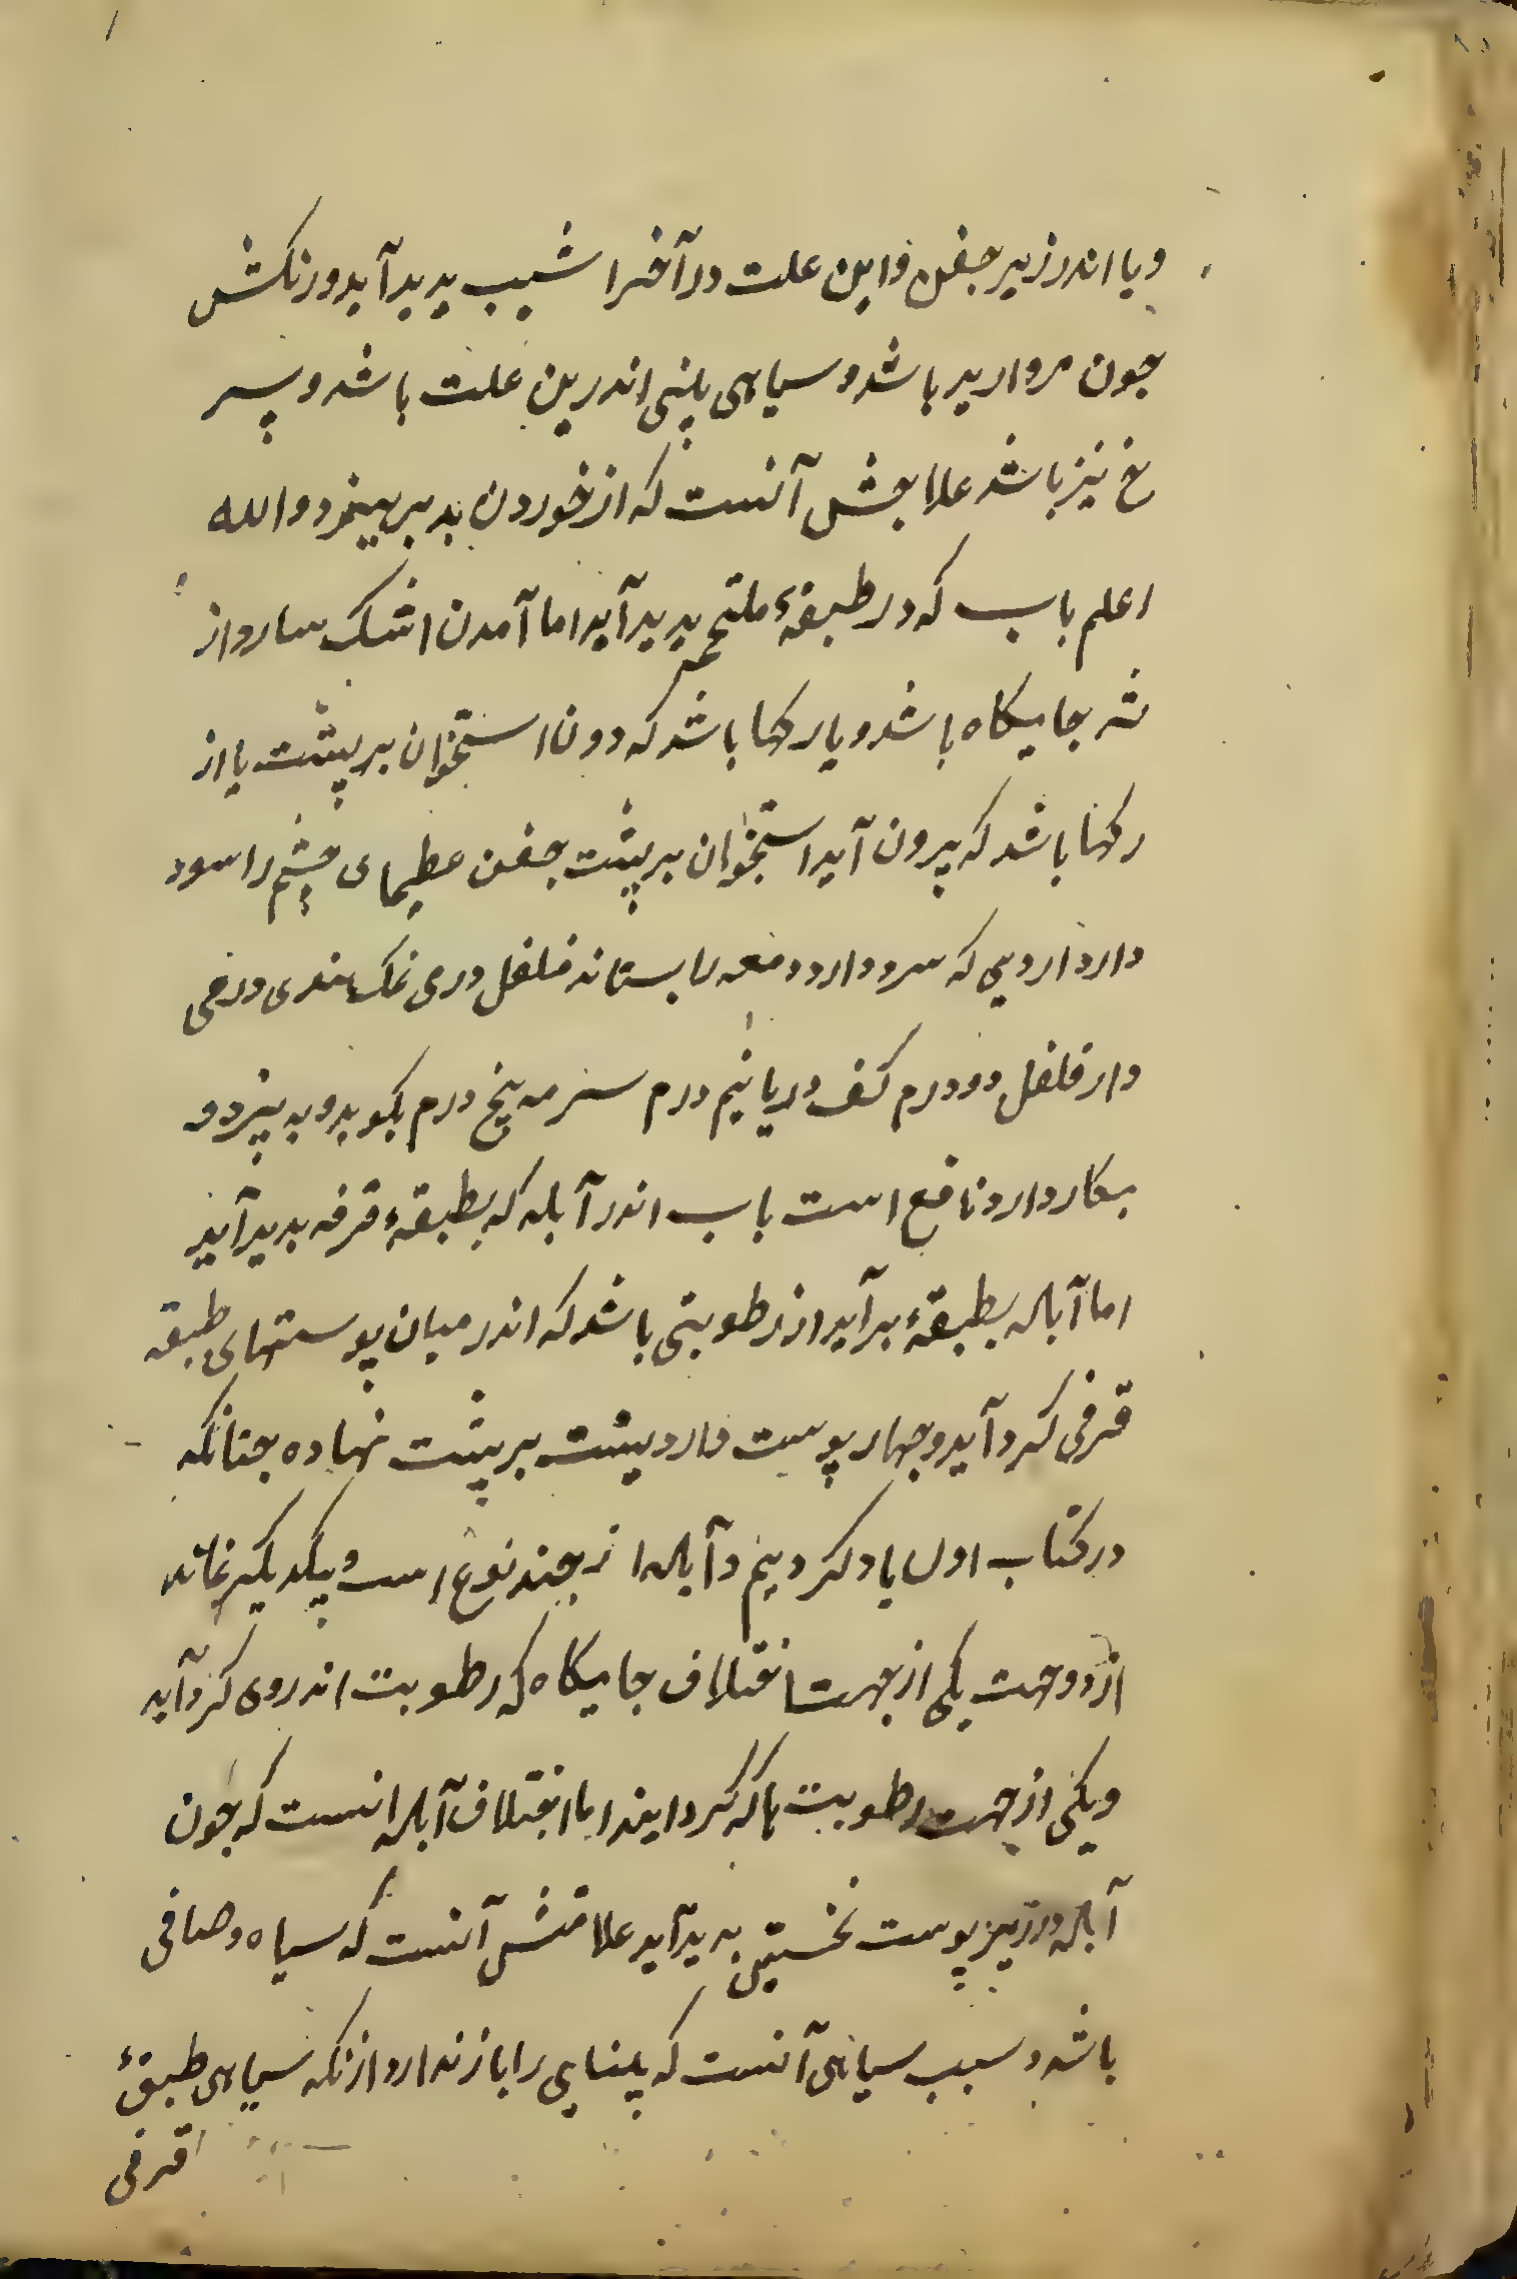 و یا اندر زیر جفن و این علت در آخر اشیب پدید آید و رنکش
جون مروارید باشد و سیاهی بینی اندرین علت باشد و سر
خ نیز باشد علاجش آنست که از خوردن بد بپرهیزد و الله
اعلم باب که در طبقهٔ ملتحمه پدید آید اما آمدن اشک بسیار و از
سه جایکاه باشد و یا رکها باشد که دون استخوان بر پشت یا از
رکها باشد که بیرون آید استخوان بر پشت جفن عطیهای چشم را سود
دارد داروی که سود دارد دمعه را بستاند فلفل درمی نمک هندی درمی
دار فلفل دو درم کف دریا نیم درم سرمه پنج درم بکوبد و به بیزد و
بکار دارد نافع است باب اندر آبله که بطبقهٔ قرفه بدید آید
اما آبله بطبقهٔ برآید از رطوبتی باشد که اندر میان پوستهای طبقه
قرفی کرد آید و جهار پوست دارد پشت بر پشت نهاده جنانکه
در کتاب اول یاد کردیم و آبله از جند نوع است و بیکدیکر نماند
از دو جهت یکی از جهت اختلاف جایکاه که رطوبت اندر وی کرد آید
و یکی از جهت رطوبت ها که کرد ایند اما اختلاف آبله انست که جون
آبله در زیر پوست نخستین بدید آید علامتش آنست که سیاه و صافی
باشد و سبب سیاهی آنست که بینایی را باز ندارد از نکه سیاهی طبقهٔ
قرفی